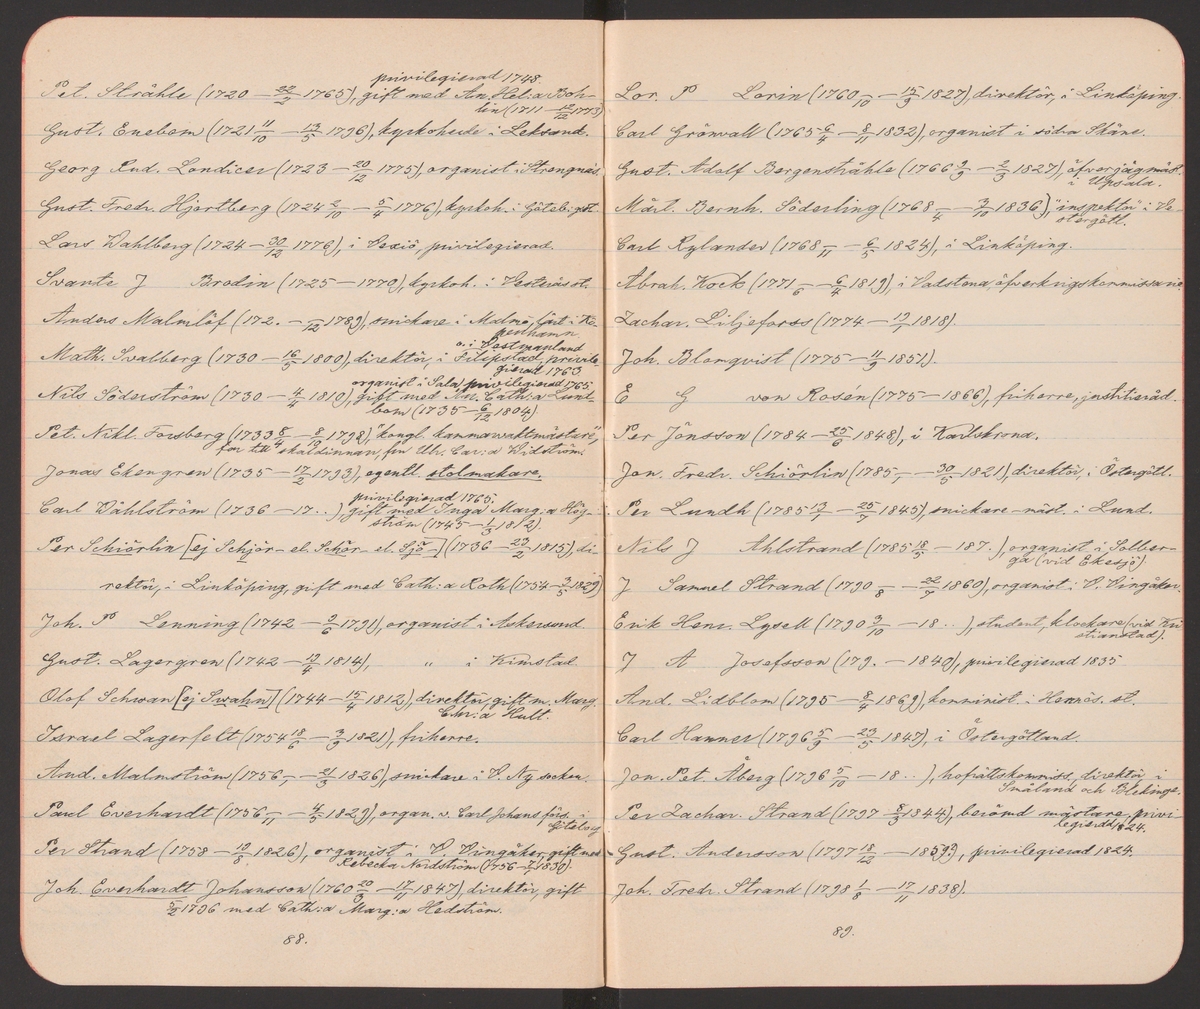 privilegierad 1748.
Pet. Stråhle (1720 — 22/2 1765), gift med An. Hel:a Boh-
lin (1711 — 12/12 1773)
Gust. Enebom (1721 11/10 — 13/5 1796), kyrkoherde i Leksand.
Georg Rud. Londicer (1723 — 20/12 1775), organist i Strengnäs.
Gust. Fredr. Hjortberg (1724 2/10 — 5/4 1776), kyrkoh. i Göteb:gst.
Lars Wahlberg (1724 — 30/12 1776), i Vexiö, privilegierad.
Svante J Brodin (1725 — 1770), kyrkoh. i Vesteråsst.
Anders Malmlöf (172. — /12 1789), snickare i Malmö, lärt i Kö-
penhamn
o. i Vestmanland
Math. Svalberg (1730 — 16/5 1800), direktör, i Filipstad, privile-
gierad 1763
organist i Sala, privilegierad 1765
Nils Söderström (1730 — 4/4 1810), gift med An. Cath:a Lund-
bom (1735 — 6/12 1804)
Pet. Nikl. Forsberg (1733 8/4 — 8/10 1798), "kongl. kammarvaktmästare",
far till skaldinnan, fru Ulr. Car:a Widström.
Jonas Ekengren (1735 — 17/2 1793), egentl. stolmakare.
privilegierad 1765,
Carl Wåhlström (1736 — 17..) gift med Inga Marg:a Hög-
ström (1745 — 1/3 1812)
Per Schiörlin [ej Schjör- el. Schör- el. Sjö-] (1736 — 23/2 1815), di-
rektör, i Linköping, gift med Cath:a Roth (1754 — 3/5 1829)
Joh. P Lenning (1742 — 9/6 1791), organist i Askersund
Gust. Lagergren (1742 — 19/4 1814), " i Kimstad
Olof Schwan [ej Swahn] (1744 — 15/4 1812), direktör, gift m. Marg.
Chr:a Hult.
Israel Lagerfelt (1754 18/6 — 3/9 1821), friherre.
And. Malmström (1756 /1 — 21/3 1826), snickare i V. Ny socken.
Paul Everhardt (1756 /11 — 4/5 1829), organ. v. Carl Johans förs. i
Göteborg
Per Strand (1758 — 19/8 1826), organist i V. Vingåker, gift med
Rebecka Nordström (1756 — 7/1 1830).
Joh. Everhardt Johansson (1760 20/3 — 17/11 1847), direktör, gift
5/2 1796 med Cath:a Marg:a Hedström.
88.
Lor. P Lorin (1760 /10 — 15/9 1827), direktör, i Linköping.
Carl Grönvall (1765 6/4 — 8/11 1832), organist i södra Skåne.
Gust. Adolf Bergenstråhle (1766 9/9 — 2/3 1827), öfverjägmäst.
i Upsala.
Mårt. Bernh. Söderling (1768 /4 — 3/10 1836), "inspektör" i Ve-
stergötl.
Carl Rylander (1768 /11 — 6/5 1824), i Linköping.
Abrah. Kock (1771 /6 — 6/4 1819), i Vadstena, öfverkrigskommissarie
Zachar. Liljeforss (1774 — 19/1 1818)
Joh. Blomqvist (1775 — 11/9 1851).
E G von Rosén (1775 — 1866), friherre, justitieråd.
Per Jönsson (1784 — 25/6 1848), i Karlskrona.
Jon. Fredr. Schiörlin (1785 /1 — 30/5 1821), direktör, i Östergötl.
Per Lundh (1785 19/1 — 25/7 1845), snickare-mäst. i Lund.
Nils J Ahlstrand (1785 18/5 — 187.), organist i Solber-
ga (vid Eksjö).
J Samuel Strand (1790 /8 — 22/7 1860), organist i V. Vingåker.
Erik Henr. Lysell (1790 3/10 — 18..), student, klockare (vid Kri-
stianstad).
J A Josefsson (179. — 1840), privilegierad 1835
And. Lidblom (1795 — 8/4 1869), komminist. i Hernös. st.
Carl Hammer (1796 5/9 — 23/5 1847), i Östergötland.
Jon. Pet. Åberg (1796 5/10 — 18..), hofrättskommiss., direktör, i
Småland och Blekinge.
Per Zachar. Strand (1797 8/3 1844), berömd mästare, privi-
legierad 1824.
Gust. Andersson (1797 18/12 — 1859?), privilegierad 1824.
Joh. Fredr. Strand (1798 1/8 — 17/11 1838).
89.